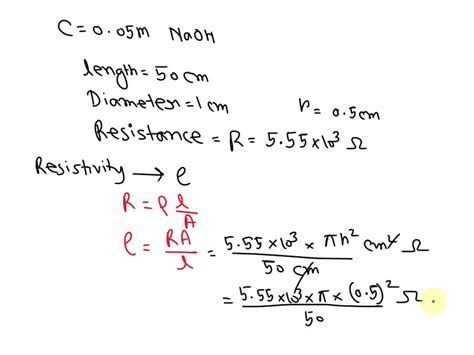 C = 0.05m NaOH
length = 50 cm
Diameter = 1 cm r = 0.5cm
Resistance = R = 5.55×10³ Ω
Resistivity → ρ
R = ρ l/A
ρ = RA/l = 5.55×10³ × πr² cm² Ω / 50 cm
= 5.55×10³ × π × (0.5)² Ω / 50